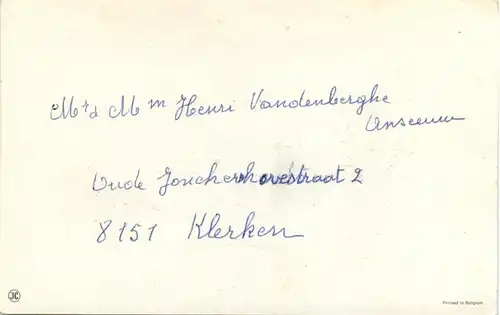 Mr & Mm Henri Vandenberghe
Anseeuw
Oude Jonckerhovestraat 2
8151 Klerken
JC
Printed in Belgium